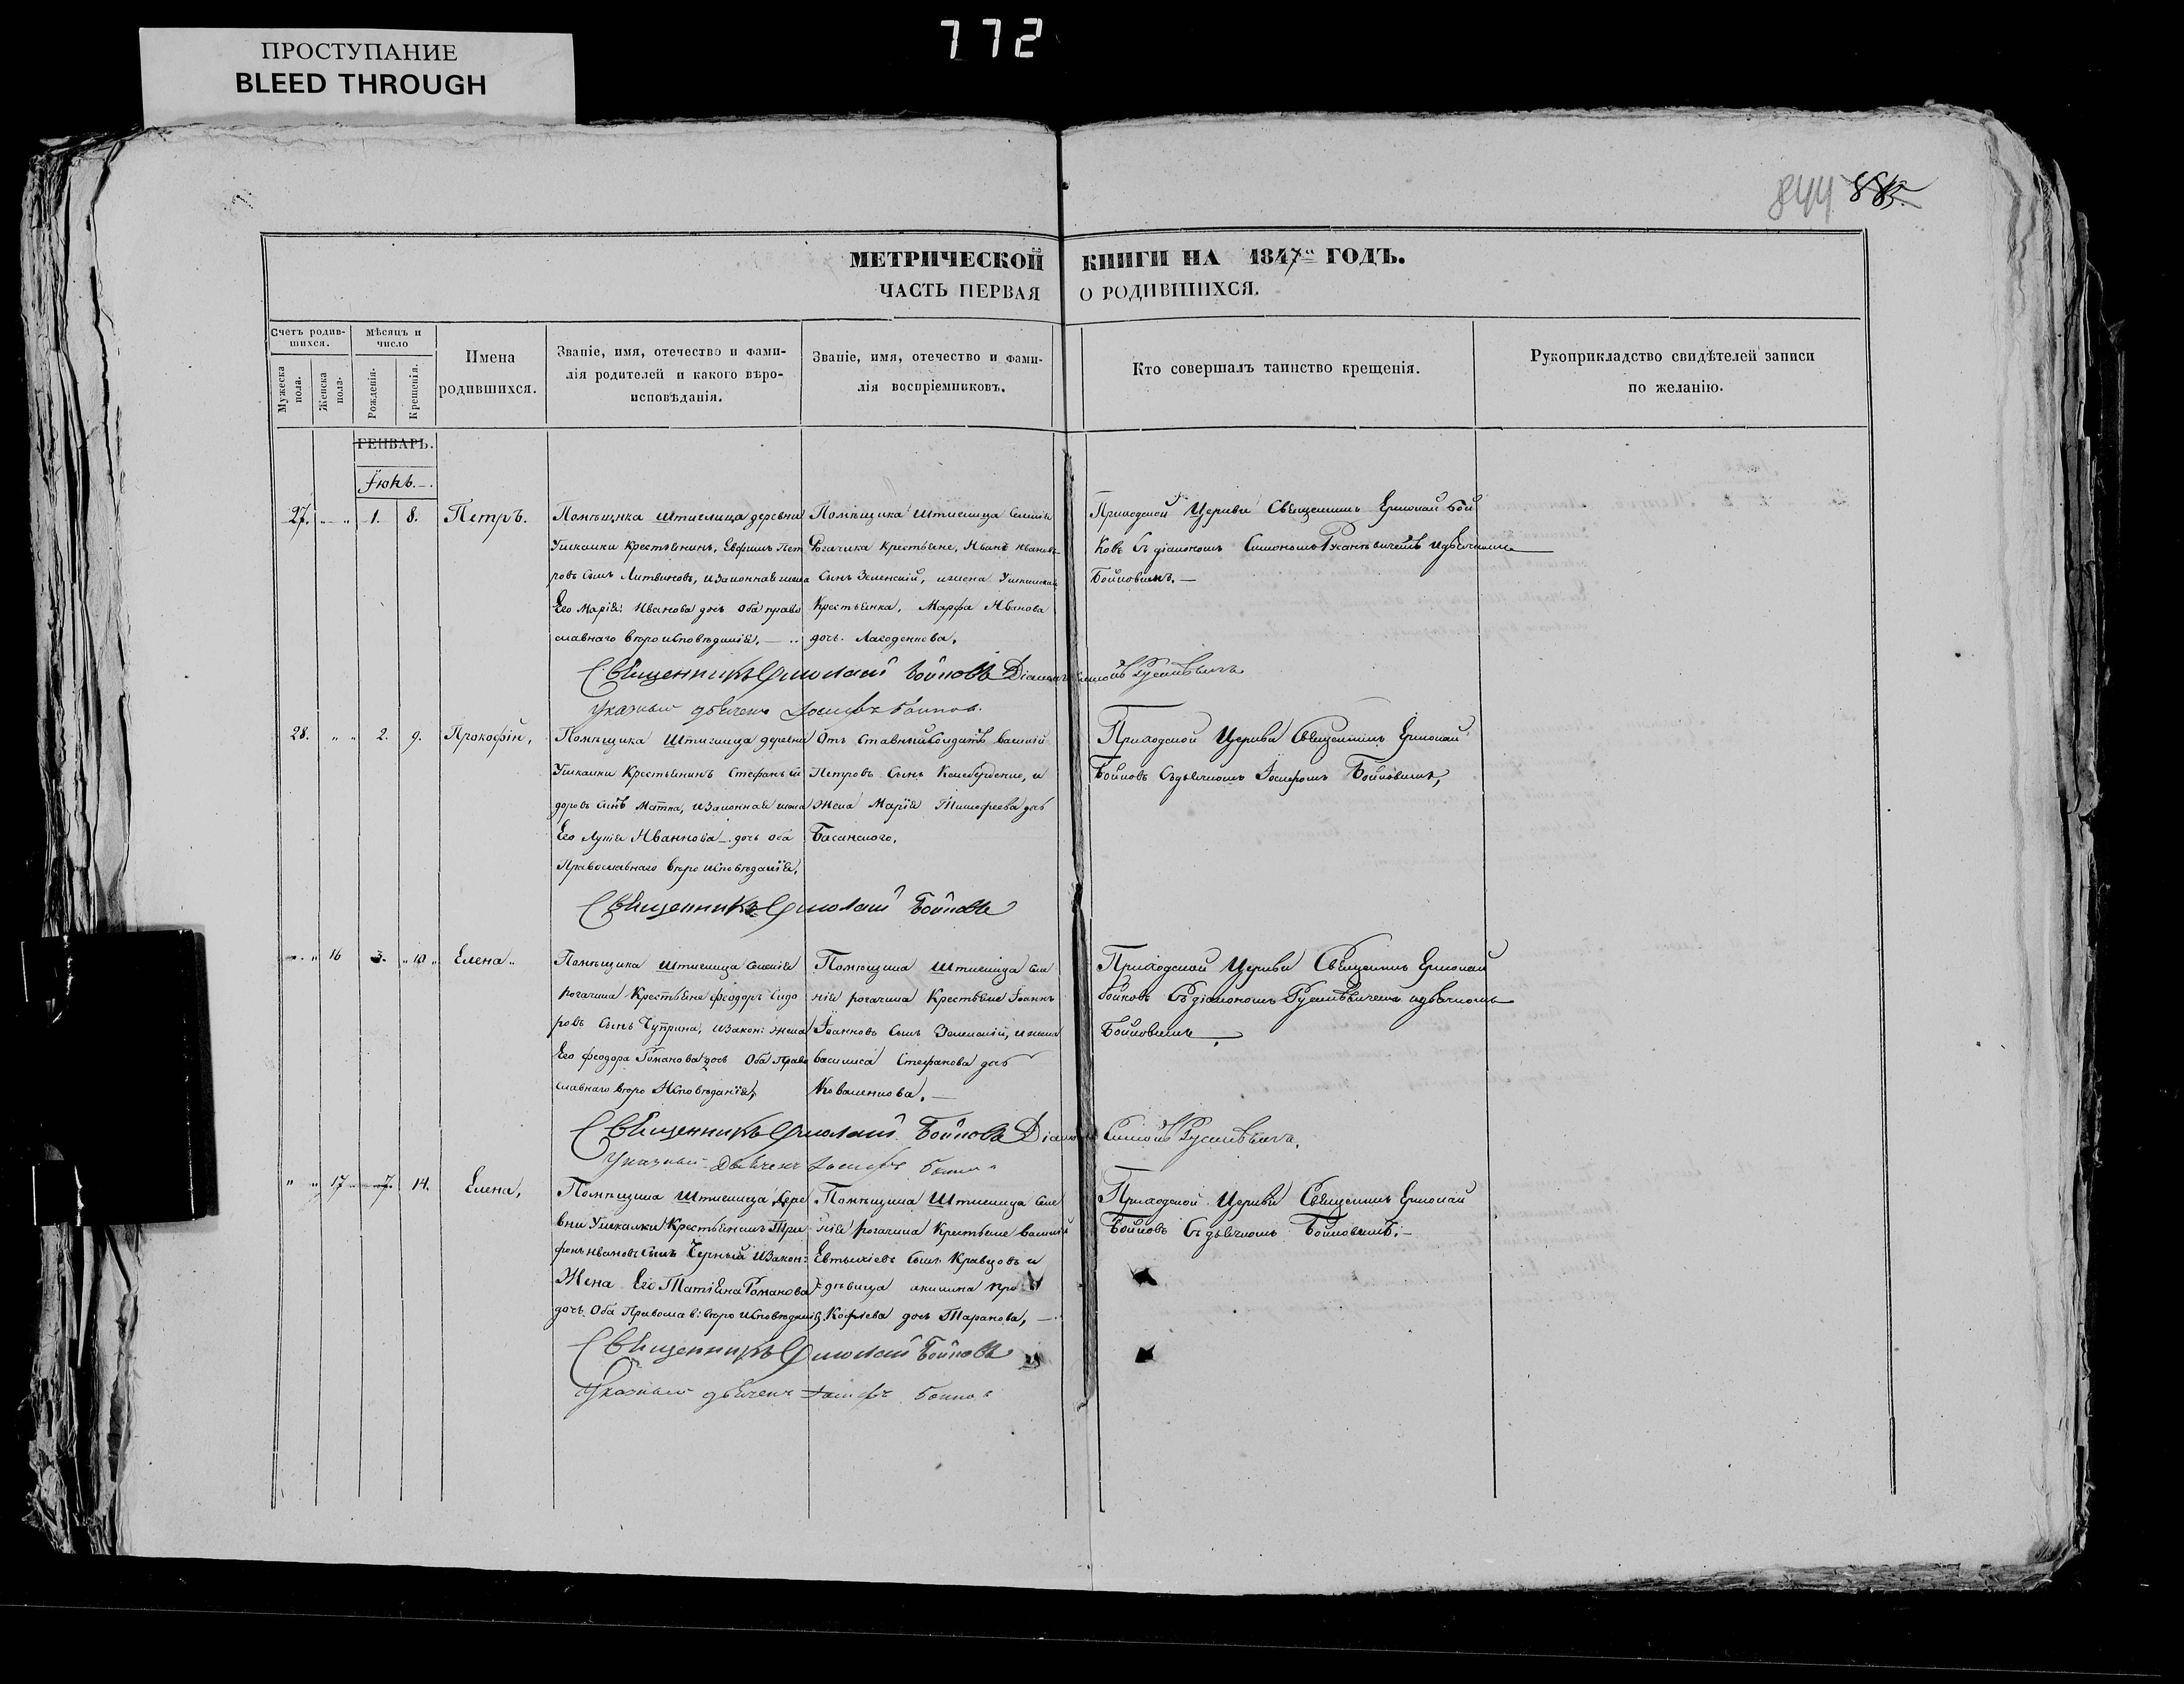 772
ПРОСТУПАНИЕ
BLEED THROUGH
844 885.
МЕТРИЧЕСКОЙ КНИГИ НА 1847 ГОДЪ.
ЧАСТЬ ПЕРВАЯ О РОДИВШИХСЯ.
Счетъ родив-
шихся.
Мѣсяцъ и
число
Мужеска
пола.
Женска
пола.
Рожденія.
Крещенія.
Имена
родившихся.
Званіе, имя, отечество и фами-
лія родителей и какого вѣро-
исповѣданія.
Званіе, имя, отечество и фами-
лія воспріемниковъ.
Кто совершалъ таинство крещенія.
Рукоприкладство свидѣтелей записи
по желанію.
ГЕНВАРЬ.
27. 1. 8. Петръ.
Помѣщика Штиглица деревни
Ушкалки Крестьянинъ, Евфимъ Пет
ровъ сынъ Литвиновъ, и законная жена
Его Марія Иванова дочь оба право
славнаго вѣроисповѣданія.
Помѣщика Штиглица
Рогачика Крестьяне, Иванъ Ивановъ
Сынъ Зеленскій, и
Крестьянка, Марфа Иванова
дочь
Приходской Церкви Священникъ Ермолай Бой
ковъ съ діакономъ Симономъ
Бойковымъ.
Священникъ Ермолай Бойковъ Діаконъ
Указный дьячекъ Іосифъ Бойков
28. 2. 9. Прокофій,
Помѣщика Штиглица деревни
Ушкалки Крестьянинъ Стефанъ Си
доровъ сынъ и законная жена
Его Иванова дочь оба
Православнаго вѣроисповѣданія.
Отъ ставный Солдатъ Василій
Петровъ Сынъ и
жена Марія Тимофеева дочь
Басанского.
Приходской Церкви Священникъ Ермолай
Бойковъ съ дьячкомъ Іосифомъ Бойковымъ,
Священникъ Ермолай Бойковъ
16 3. 10 Елена
Помѣщика Штиглица Селенія
рогачика Крестьяне Феодоръ Сидо
ровъ Сынъ Чуприна, и закон: жена
Его Феодора Романова дочь Оба Право
славнаго вѣро Исповѣданія,
Помѣщика Штиглица Селе
нія рогачика Крестьяне Іоаннъ
Іоанновъ Сынъ Зеленскій, и жена
василиса Стефанова дочь
Коваленкова.
Приходской Церкви Священникъ Ермолай
Бойковъ Съ діакономъ и дьячкомъ
Бойковымъ
Священникъ Ермолай Бойковъ
Указный Дьячекъ Іосифъ
17 7. 14. Елена,
Помѣщика Штиглица Дере
вни Ушкалки Крестьянинъ Три
фонъ Ивановъ Сынъ Черный и закон:
Жена Его Татіана Романова
дочь Оба Православ: вѣро исповѣданія
Помѣщика Штиглица Селе
нія рогачика Крестьяне василій
Евтыхіевъ Сынъ Кравцовъ и
дѣвица акилина про
Кофіева дочь Таранова,
Приходской Церкви Священникъ Ермолай
Бойковъ Съ дьячкомъ Бойковымъ.
Священникъ Ермолай Бойковъ
Указный дьячекъ Іосифъ